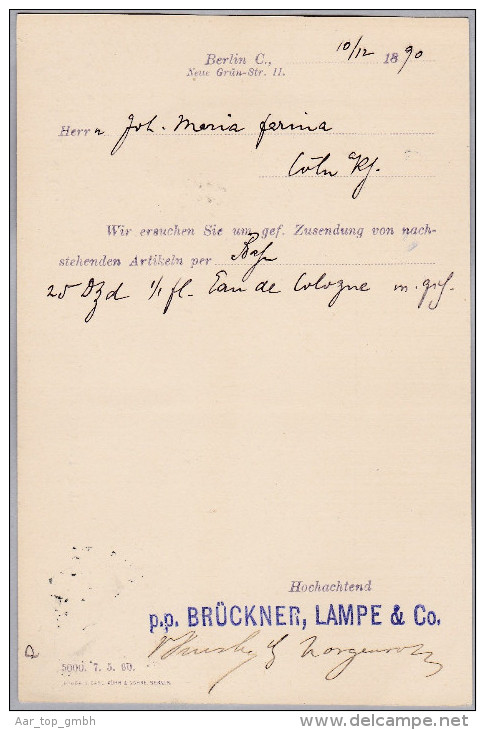 Berlin C., 10/12 1890
Neue Grün-Str. 11.
Herrn Joh. Maria Farina
Cöln a/Rh.
Wir ersuchen Sie um gef. Zusendung von nach-
stehenden Artikeln per Bahn
25 Dzd 1/1 fl. Eau de Cologne
Hochachtend
p.p. BRÜCKNER, LAMPE & Co.
5000. 7. 5. 90.
Aar_top_gmbh
www.delcampe.net